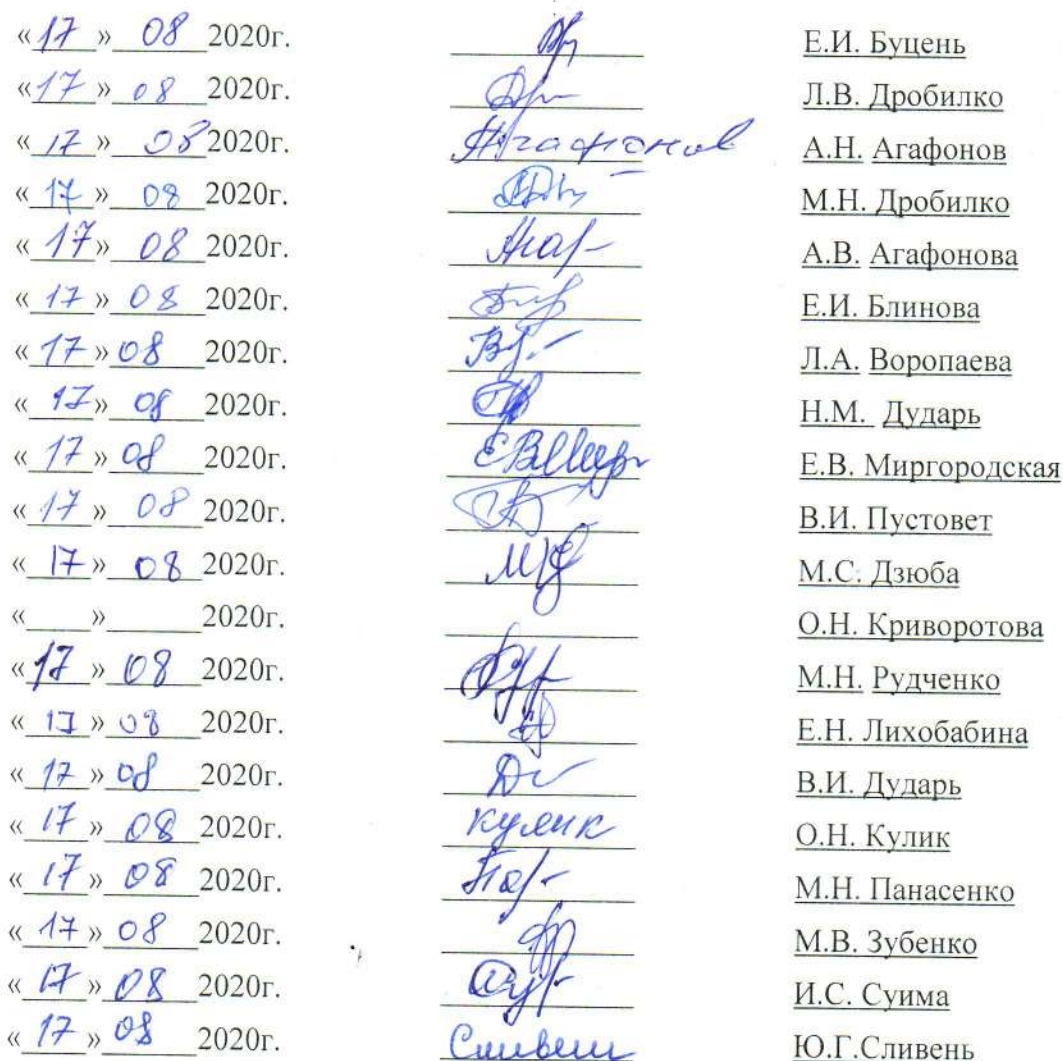 «17» 08 2020г. Е.И. Буцень
«17» 08 2020г. Л.В. Дробилко
«17» 08 2020г. Агафонов А.Н. Агафонов
«17» 08 2020г. М.Н. Дробилко
«17» 08 2020г. А.В. Агафонова
«17» 08 2020г. Е.И. Блинова
«17» 08 2020г. Л.А. Воропаева
«17» 08 2020г. Н.М. Дударь
«17» 08 2020г. Е.В. Миргородская
«17» 08 2020г. В.И. Пустовет
«17» 08 2020г. М.С. Дзюба
«____»______2020г. ____________ О.Н. Криворотова
«17» 08 2020г. М.Н. Рудченко
«17» 08 2020г. Е.Н. Лихобабина
«17» 08 2020г. В.И. Дударь
«17» 08 2020г. Кулик О.Н. Кулик
«17» 08 2020г. М.Н. Панасенко
«17» 08 2020г. М.В. Зубенко
«17» 08 2020г. И.С. Суима
«17» 08 2020г. Сливень Ю.Г.Сливень